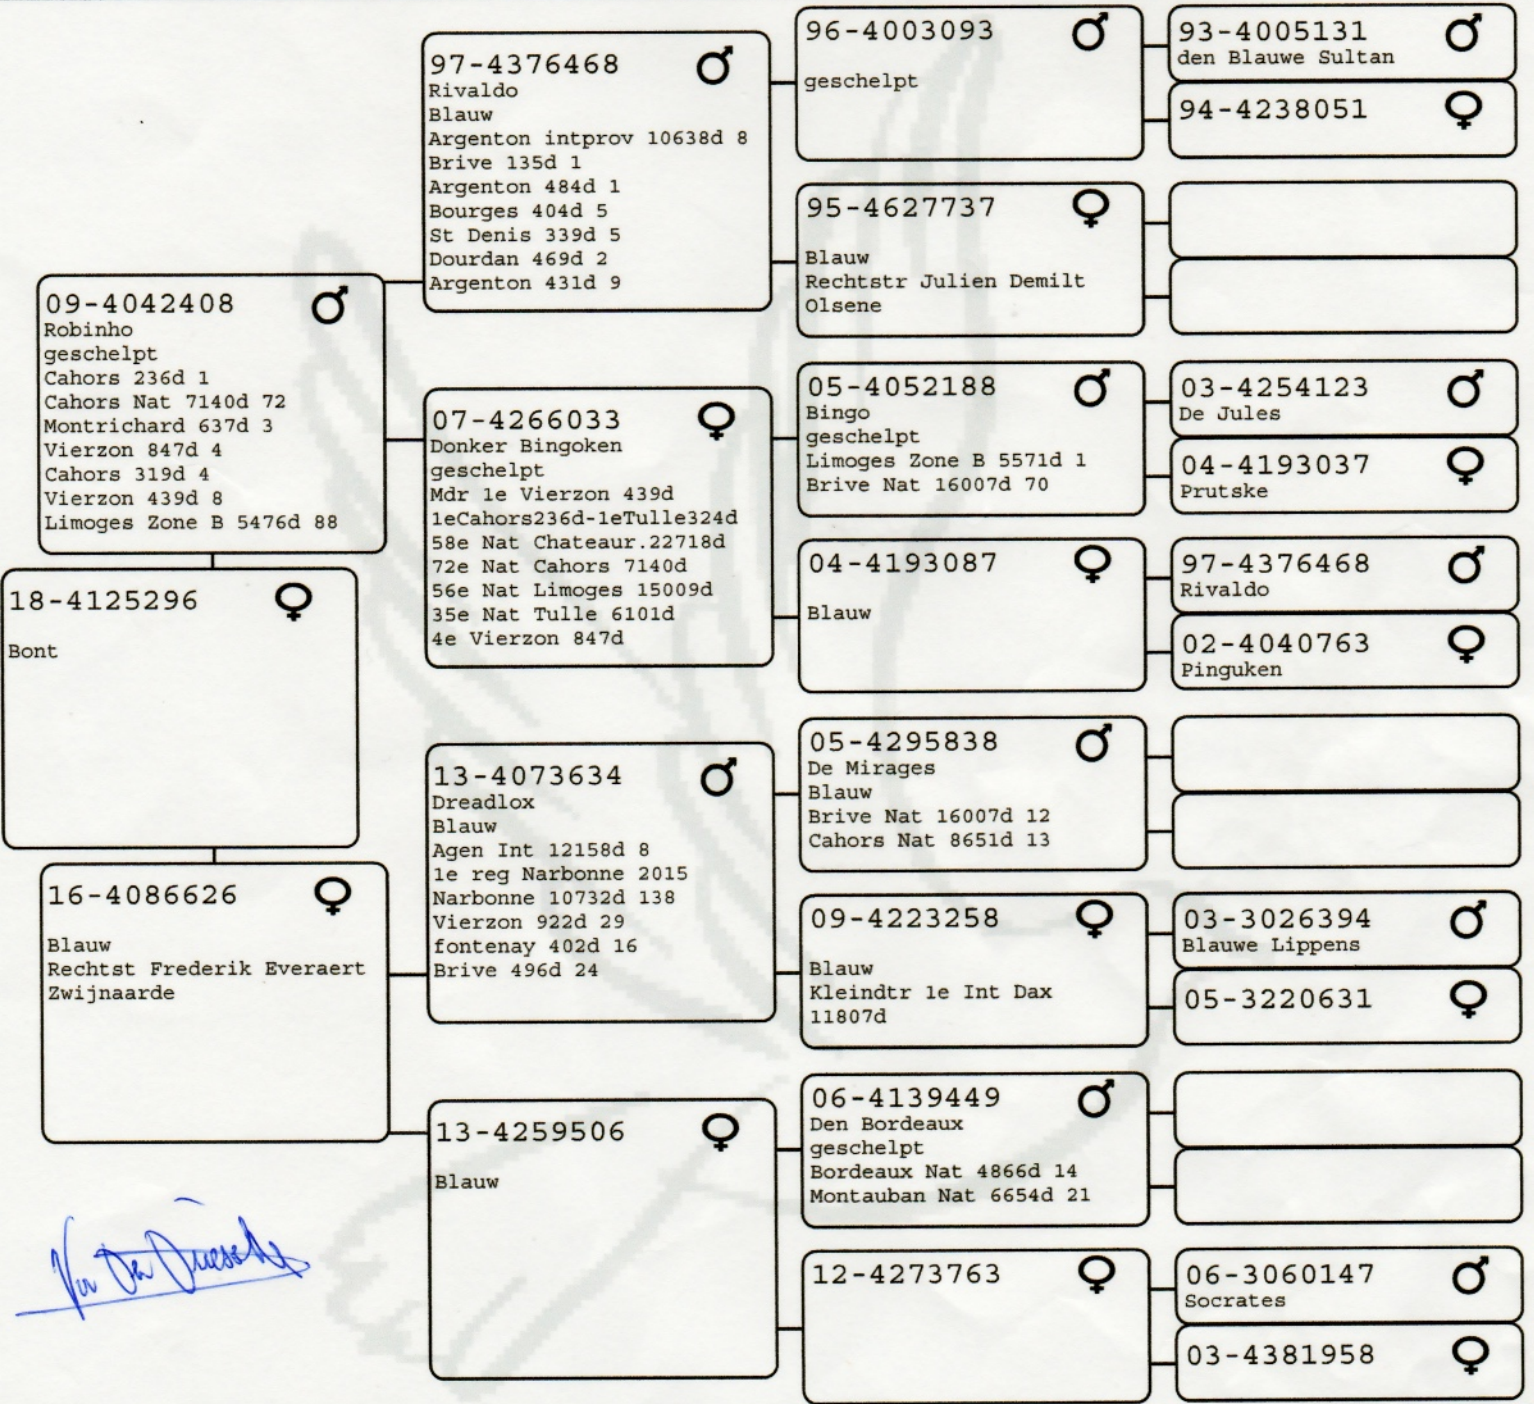 18-4125296
Bont
09-4042408
Robinho
geschelpt
Cahors 236d 1
Cahors Nat 7140d 72
Montrichard 637d 3
Vierzon 847d 4
Cahors 319d 4
Vierzon 439d 8
Limoges Zone B 5476d 88
16-4086626
Blauw
Rechtst Frederik Everaert
Zwijnaarde
97-4376468
Rivaldo
Blauw
Argenton intprov 10638d 8
Brive 135d 1
Argenton 484d 1
Bourges 404d 5
St Denis 339d 5
Dourdan 469d 2
Argenton 431d 9
07-4266033
Donker Bingoken
geschelpt
Mdr 1e Vierzon 439d
1eCahors236d-1eTulle324d
58e Nat Chateaur.22718d
72e Nat Cahors 7140d
56e Nat Limoges 15009d
35e Nat Tulle 6101d
4e Vierzon 847d
13-4073634
Dreadlox
Blauw
Agen Int 12158d 8
1e reg Narbonne 2015
Narbonne 10732d 138
Vierzon 922d 29
fontenay 402d 16
Brive 496d 24
13-4259506
Blauw
96-4003093
geschelpt
95-4627737
Blauw
Rechtstr Julien Demilt
Olsene
05-4052188
Bingo
geschelpt
Limoges Zone B 5571d 1
Brive Nat 16007d 70
04-4193087
Blauw
05-4295838
De Mirages
Blauw
Brive Nat 16007d 12
Cahors Nat 8651d 13
09-4223258
Blauw
Kleindtr 1e Int Dax
11807d
06-4139449
Den Bordeaux
geschelpt
Bordeaux Nat 4866d 14
Montauban Nat 6654d 21
12-4273763
93-4005131
den Blauwe Sultan
94-4238051
03-4254123
De Jules
04-4193037
Prutske
97-4376468
Rivaldo
02-4040763
Pinguken
03-3026394
Blauwe Lippens
05-3220631
06-3060147
Socrates
03-4381958